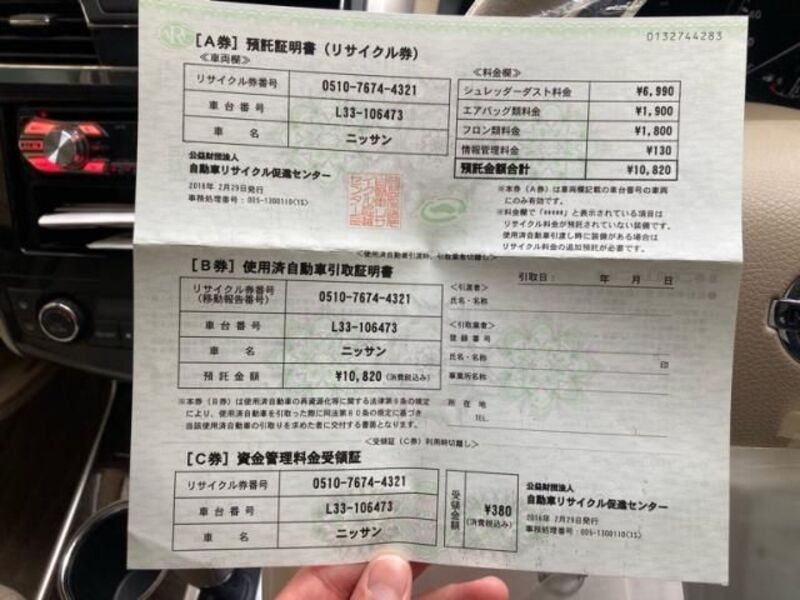 0132744283
[A券] 預託証明書 (リサイクル券)
≪車両欄≫
リサイクル券番号 0510-7674-4321
車台番号 L33-106473
車 名 ニッサン
≪料金欄≫
シュレッダーダスト料金 ¥6,990
エアバッグ類料金 ¥1,900
フロン類料金 ¥1,800
情報管理料金 ¥130
預託金額合計 ¥10,820
公益財団法人
自動車リサイクル促進センター
2016年 2月29日発行
事務処理番号:005-1300110(1S)
※本券(A券)は車両欄記載の車台番号の車両
にのみ有効です。
※料金欄で「*****」と表示されている項目は
リサイクル料金が預託されていない装備です。
使用済自動車引渡し時に装備がある場合は
リサイクル料金の追加預託が必要です。
<使用済自動車引渡時、引取業者切離し>
[B券] 使用済自動車引取証明書
引取日: 年 月 日
リサイクル券番号
(移動報告番号) 0510-7674-4321
車台番号 L33-106473
車 名 ニッサン
預託金額 ¥10,820 (消費税込み)
<引渡者>
氏名・名称
<引取業者>
登録番号
氏名・名称 印
事業所名称
所在地
TEL.
※本券(B券)は使用済自動車の再資源化等に関する法律第9条の規定
により、使用済自動車を引取った際に同法第80条の規定に基づき
当該使用済自動車の引取りを求めた者に交付する書面となります。
<受領証(C券)利用時切離し>
[C券] 資金管理料金受領証
リサイクル券番号 0510-7674-4321
車台番号 L33-106473
車 名 ニッサン
受領金額 ¥380
(消費税込み)
公益財団法人
自動車リサイクル促進センター
2016年 2月29日発行
事務処理番号:005-1300110(1S)